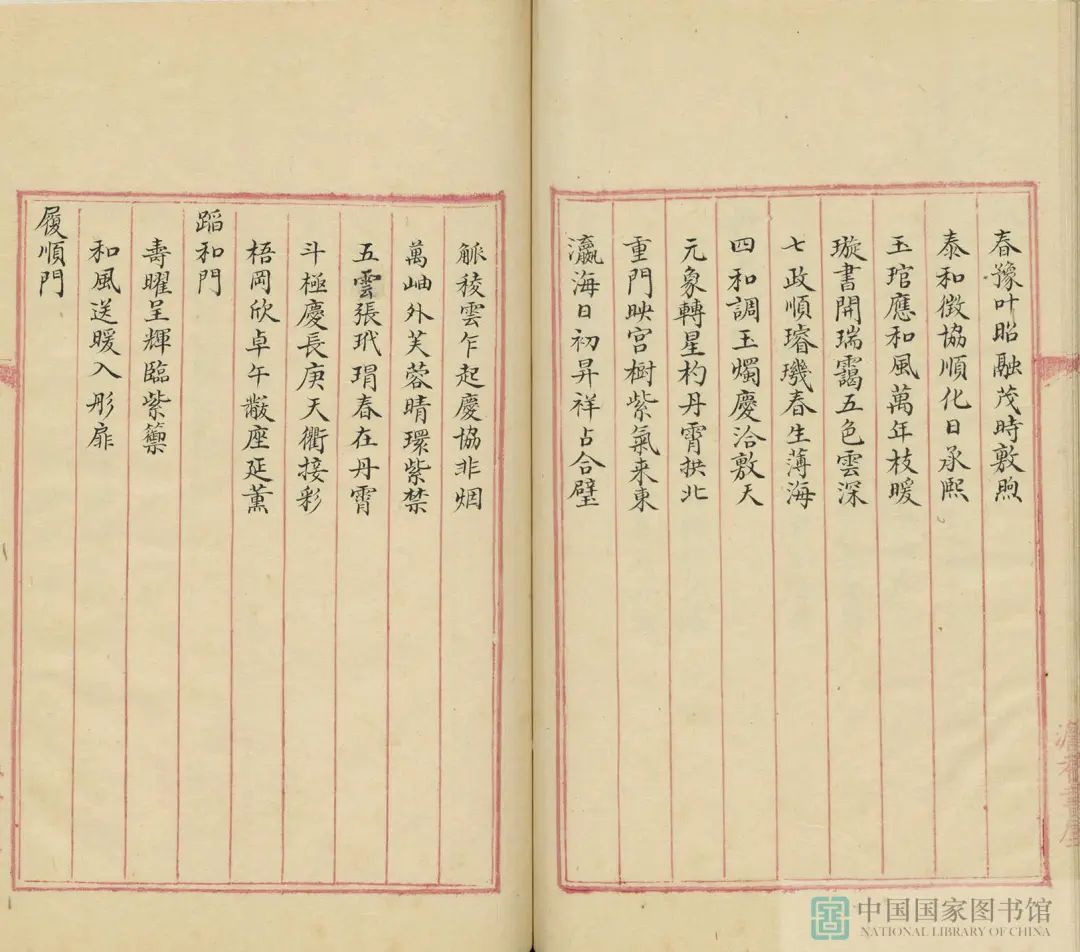 春豫叶昭融茂時敷煦
泰和徵協順化日承熙
玉琯應和風萬年枝暖
璇書開瑞靄五色雲深
七政順璿璣春生薄海
四和調玉燭慶洽敷天
元象轉星杓丹霄拱北
重門映宮樹紫氣来東
瀛海日初昇祥占合璧
觚稜雲乍起慶協非烟
萬岫外芙蓉晴環紫禁
五雲張玳瑁春在丹霄
斗極慶長庚天衢接彩
梧岡欣卓午黻座延薰
蹈和門
壽曜呈輝臨紫籞
和風送暖入彤扉
履順門
中国国家图书馆
NATIONAL LIBRARY OF CHINA